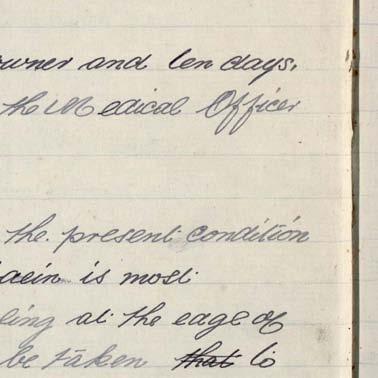 owner and ten days,
the Medical Officer
the present condition
is most
at the eage of
be taken that to